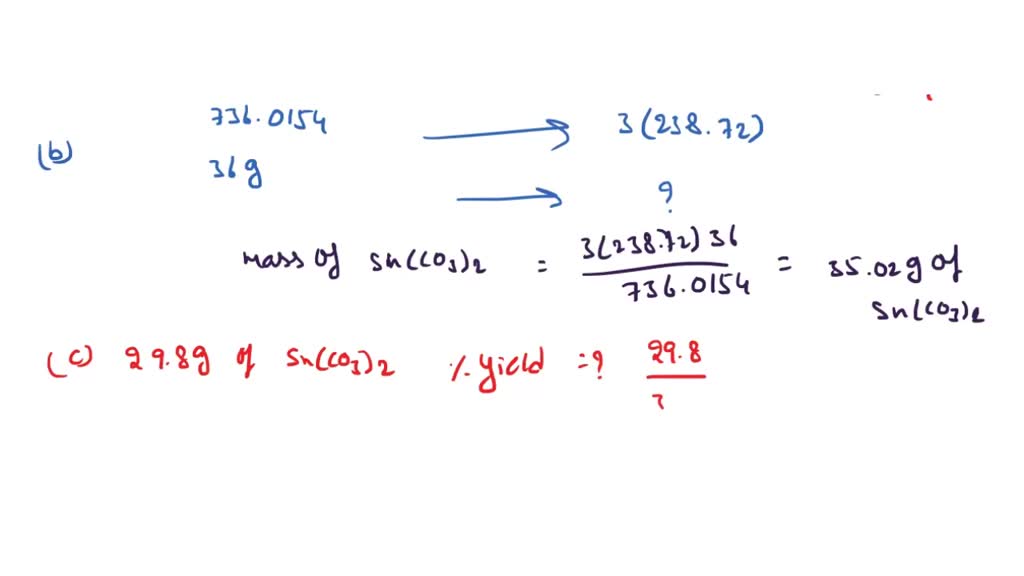 (b) 736.0154 → 3(238.72)
36g → ?
mass of sn(co3)2 = 3(238.72) 36 / 736.0154 = 35.02g of sn(co3)2
(c) 29.8g of sn(co3)2 % yield = ? 29.8 / 3